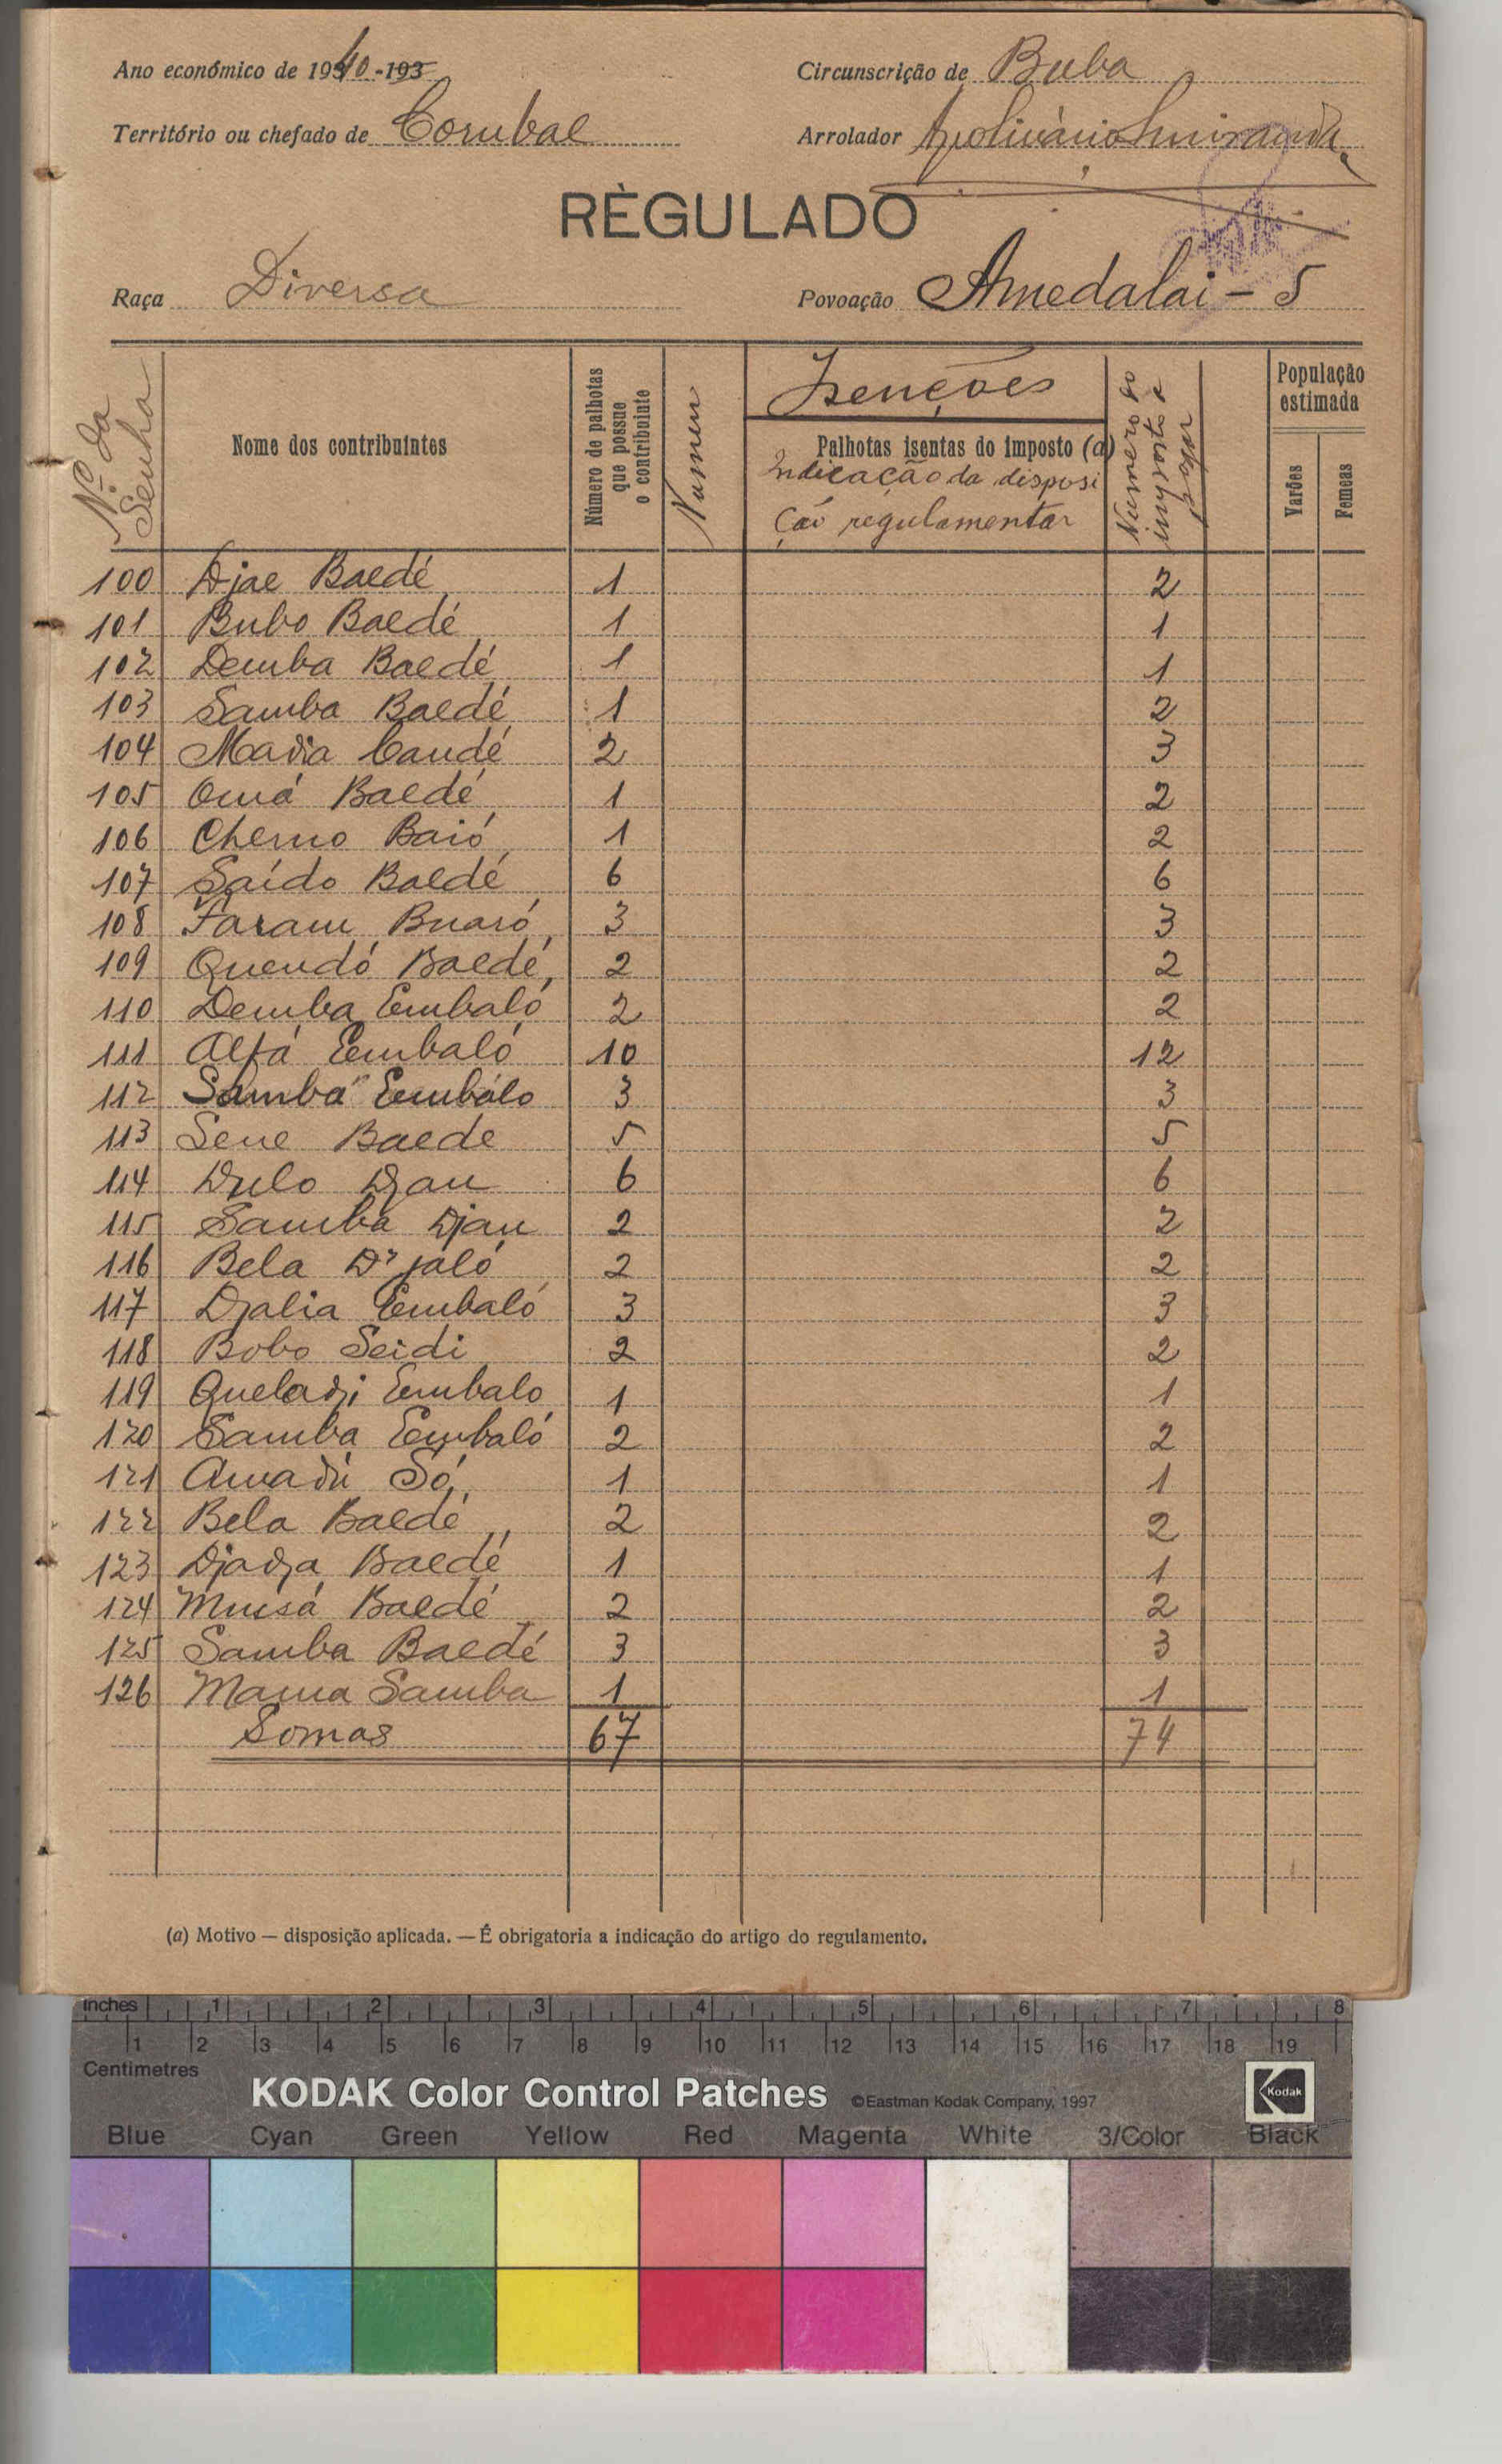 Ano económico de 1940-193
Circunscrição de Buba
Território ou chefado de Corubal
Arrolador Apolinário Miranda
RÈGULADO
Raça Diversa
Povoação Amedalai - 5
Nº da Senha
Nome dos contribuintes
Número de palhotas que possue o contribuinte
Numero
Isenções
Palhotas isentas do imposto (a)
Indicação da disposi
ção regulamentar
Numero do imposto a pagar
População estimada
Varões
Femeas
100 Djae Baldé 1 2
101 Bubo Baldé 1 1
102 Demba Baldé 1 1
103 Samba Baldé 1 2
104 Madia Candé 2 3
105 Omá Baldé 1 2
106 Cherno Baió 1 2
107 Saído Baldé 6 6
108 Faram Buaró 3 3
109 Quendó Baldé 2 2
110 Demba Embaló 2 2
111 Alfá Embaló 10 12
112 Samba Embálo 3 3
113 Sene Baldé 5 5
114 Dulo Djau 6 6
115 Samba Djau 2 2
116 Bela Djaló 2 2
117 Djalia Embaló 3 3
118 Bobo Seidi 2 2
119 Queladji Embalo 1 1
120 Samba Embaló 2 2
121 Amadú Só 1 1
122 Bela Baldé 2 2
123 Djadja Baldé 1 1
124 Mussá Baldé 2 2
125 Samba Baldé 3 3
126 Mama Samba 1 1
Somas 67 74
(a) Motivo — disposição aplicada. — É obrigatoria a indicação do artigo do regulamento.
inches 1 2 3 4 5 6 7 8
1 2 3 4 5 6 7 8 9 10 11 12 13 14 15 16 17 18 19
Centimetres
KODAK Color Control Patches ©Eastman Kodak Company, 1997 Kodak
Blue Cyan Green Yellow Red Magenta White 3/Color Black